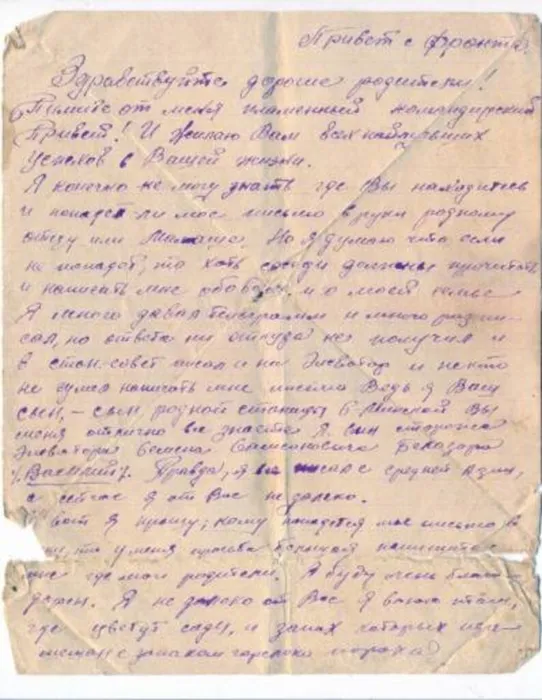 Привет с фронта.
Здравствуйте дорогие родители!
Примите от меня пламенный командирский
Привет! И желаю Вам всех наилучших
успехов в Вашей жизни.
Я конечно не могу знать где Вы находитесь
и попадет ли мое письмо в руки родному
отцу или Мамаше. Но я думаю что если
не попадет, то хоть соседи должны прочитать
и написать мне обо всем, и о моей семье
Я много давал телеграмм и много писем
но ответа ни откуда не получил и
в стан-совет писал и на Элеватор и некто
не сумел написать мне письма Ведь я Ваш
сын, – сын, родной станицы Вы
меня отлично все знаете Я сын сторожа
Элеватора Семена
/Василий/. Правда, я писал с средней Азии,
а сейчас я от Вас не далеко.
И вот я прошу, кому попадется мое письмо в
то у меня просьба большая напишите
мне где мои родители. Я буду очень благо-
дарен. Я не далеко от Вас я
где цветут сады, и запах которых
с запахом пороха